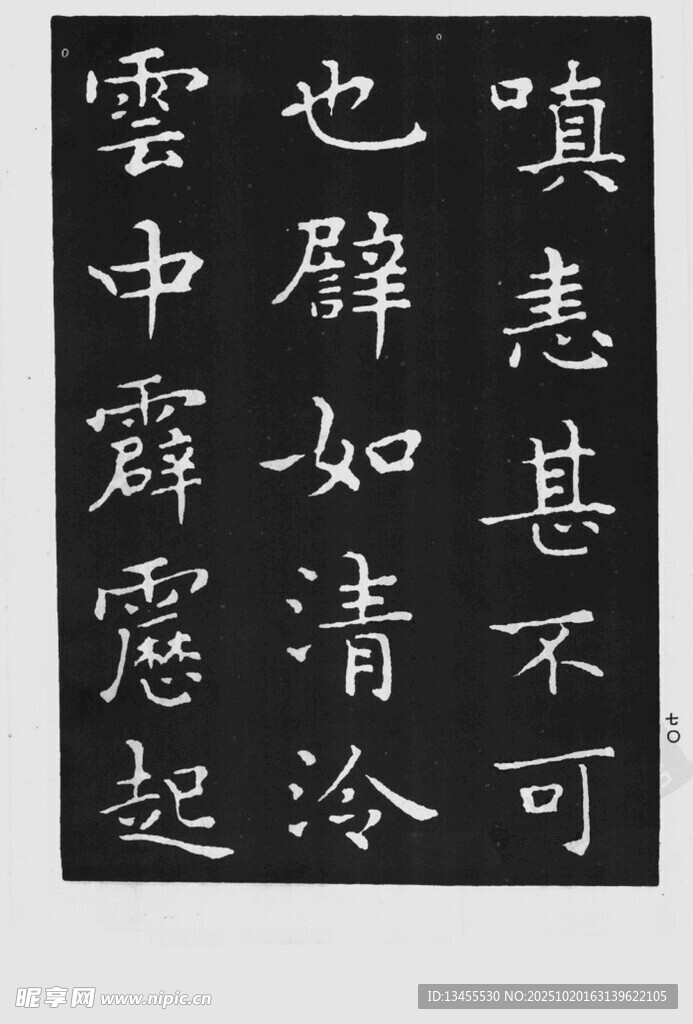 嗔恚甚不可
也譬如清泠
雲中霹靂起
七〇
昵享网 www.nipic.cn
ID:13455530 NO:20251020163139622105